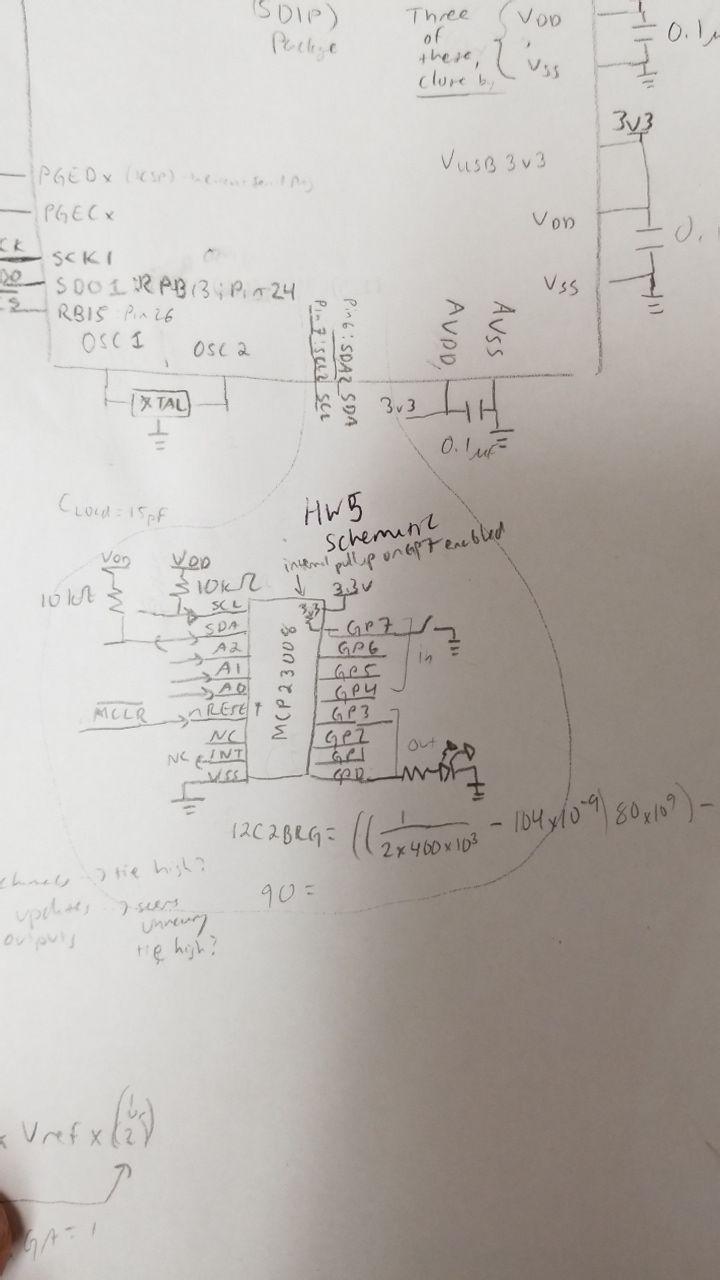 (SDIP)
Package
Three
of
these,
close by
VDD
VSS
0.1μ
3v3
VUSB 3v3
VDD
0.
VSS
PGEDx (ICSP)
PGECx
CK
SCK1
DO
SDO1: RPB13; Pin 24
RB15 Pin 26
OSC1
OSC2
Pin 7: SCL2 SCL
Pin 6: SDA2 SDA
AVDD
AVSS
XTAL
3v3
0.1μF
CLoad = 15pF
HW5
Schematic
internal pullup on GP7 enabled
VDD
VDD
10kΩ
10kΩ
3.3V
3v3
MCP23008
SCL
SDA
A2
A1
A0
MCLR
nRESET
NC
NC
INT
VSS
GP7
GP6
GP5
GP4
GP3
GP2
GP1
GP0
in
out
I2C2BRG = ((1/2x400x10³ - 104x10⁻⁹) 80x10⁹) -
90 =
→ tie high?
updates →
outputs
tie high?
x Vref x
2
GA = 1